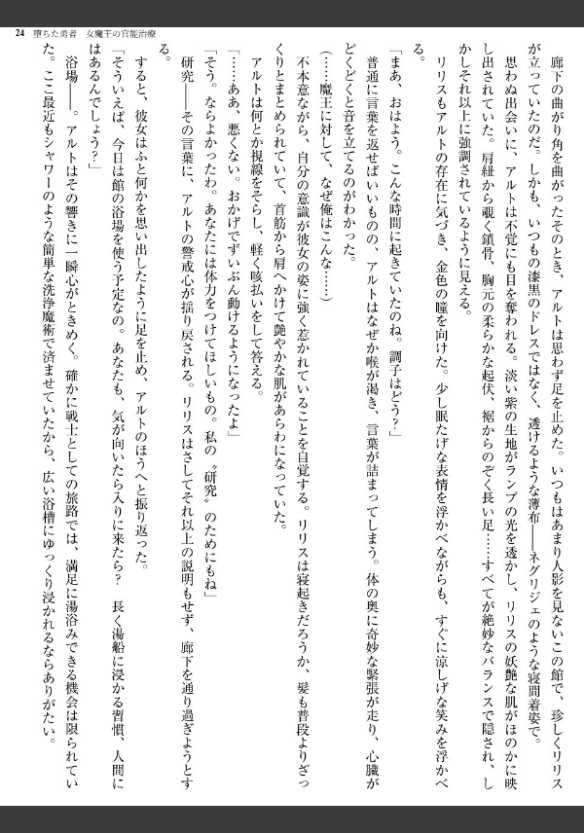 24 堕ちた勇者　女魔王の官能治療
　廊下の曲がり角を曲がったそのとき、アルトは思わず足を止めた。いつもはあまり人影を見ないこの館で、珍しくリリス
が立っていたのだ。しかも、いつもの漆黒のドレスではなく、透けるような薄布――ネグリジェのような寝間着姿で。
　思わぬ出会いに、アルトは不覚にも目を奪われる。淡い紫の生地がランプの光を透かし、リリスの妖艶な肌がほのかに映
し出されていた。肩紐から覗く鎖骨、胸元の柔らかな起伏、裾からのぞく長い足……すべてが絶妙なバランスで隠され、し
かしそれ以上に強調されているように見える。
　リリスもアルトの存在に気づき、金色の瞳を向けた。少し眠たげな表情を浮かべながらも、すぐに涼しげな笑みを浮かべ
る。
「まあ、おはよう。こんな時間に起きていたのね。調子はどう？」
　普通に言葉を返せばいいものの、アルトはなぜか喉が渇き、言葉が詰まってしまう。体の奥に奇妙な緊張が走り、心臓が
どくどくと音を立てるのがわかった。
（……魔王に対して、なぜ俺はこんな……）
　不本意ながら、自分の意識が彼女の姿に強く惹かれていることを自覚する。リリスは寝起きだろうか、髪も普段よりざっ
くりとまとめられていて、首筋から肩へかけて艶やかな肌があらわになっていた。
　アルトは何とか視線をそらし、軽く咳払いをして答える。
「……ああ、悪くない。おかげでずいぶん動けるようになったよ」
「そう。ならよかったわ。あなたには体力をつけてほしいもの。私の〝研究〟のためにもね」
　研究――その言葉に、アルトの警戒心が揺り戻される。リリスはさしてそれ以上の説明もせず、廊下を通り過ぎようとす
る。
　すると、彼女はふと何かを思い出したように足を止め、アルトのほうへと振り返った。
「そういえば、今日は館の浴場を使う予定なの。あなたも、気が向いたら入りに来たら？　長く湯船に浸かる習慣、人間に
はあるんでしょう？」
　浴場――。アルトはその響きに一瞬心がときめく。確かに戦士としての旅路では、満足に湯浴みできる機会は限られてい
た。ここ最近もシャワーのような簡単な洗浄魔術で済ませていたから、広い浴槽にゆっくり浸かれるならありがたい。